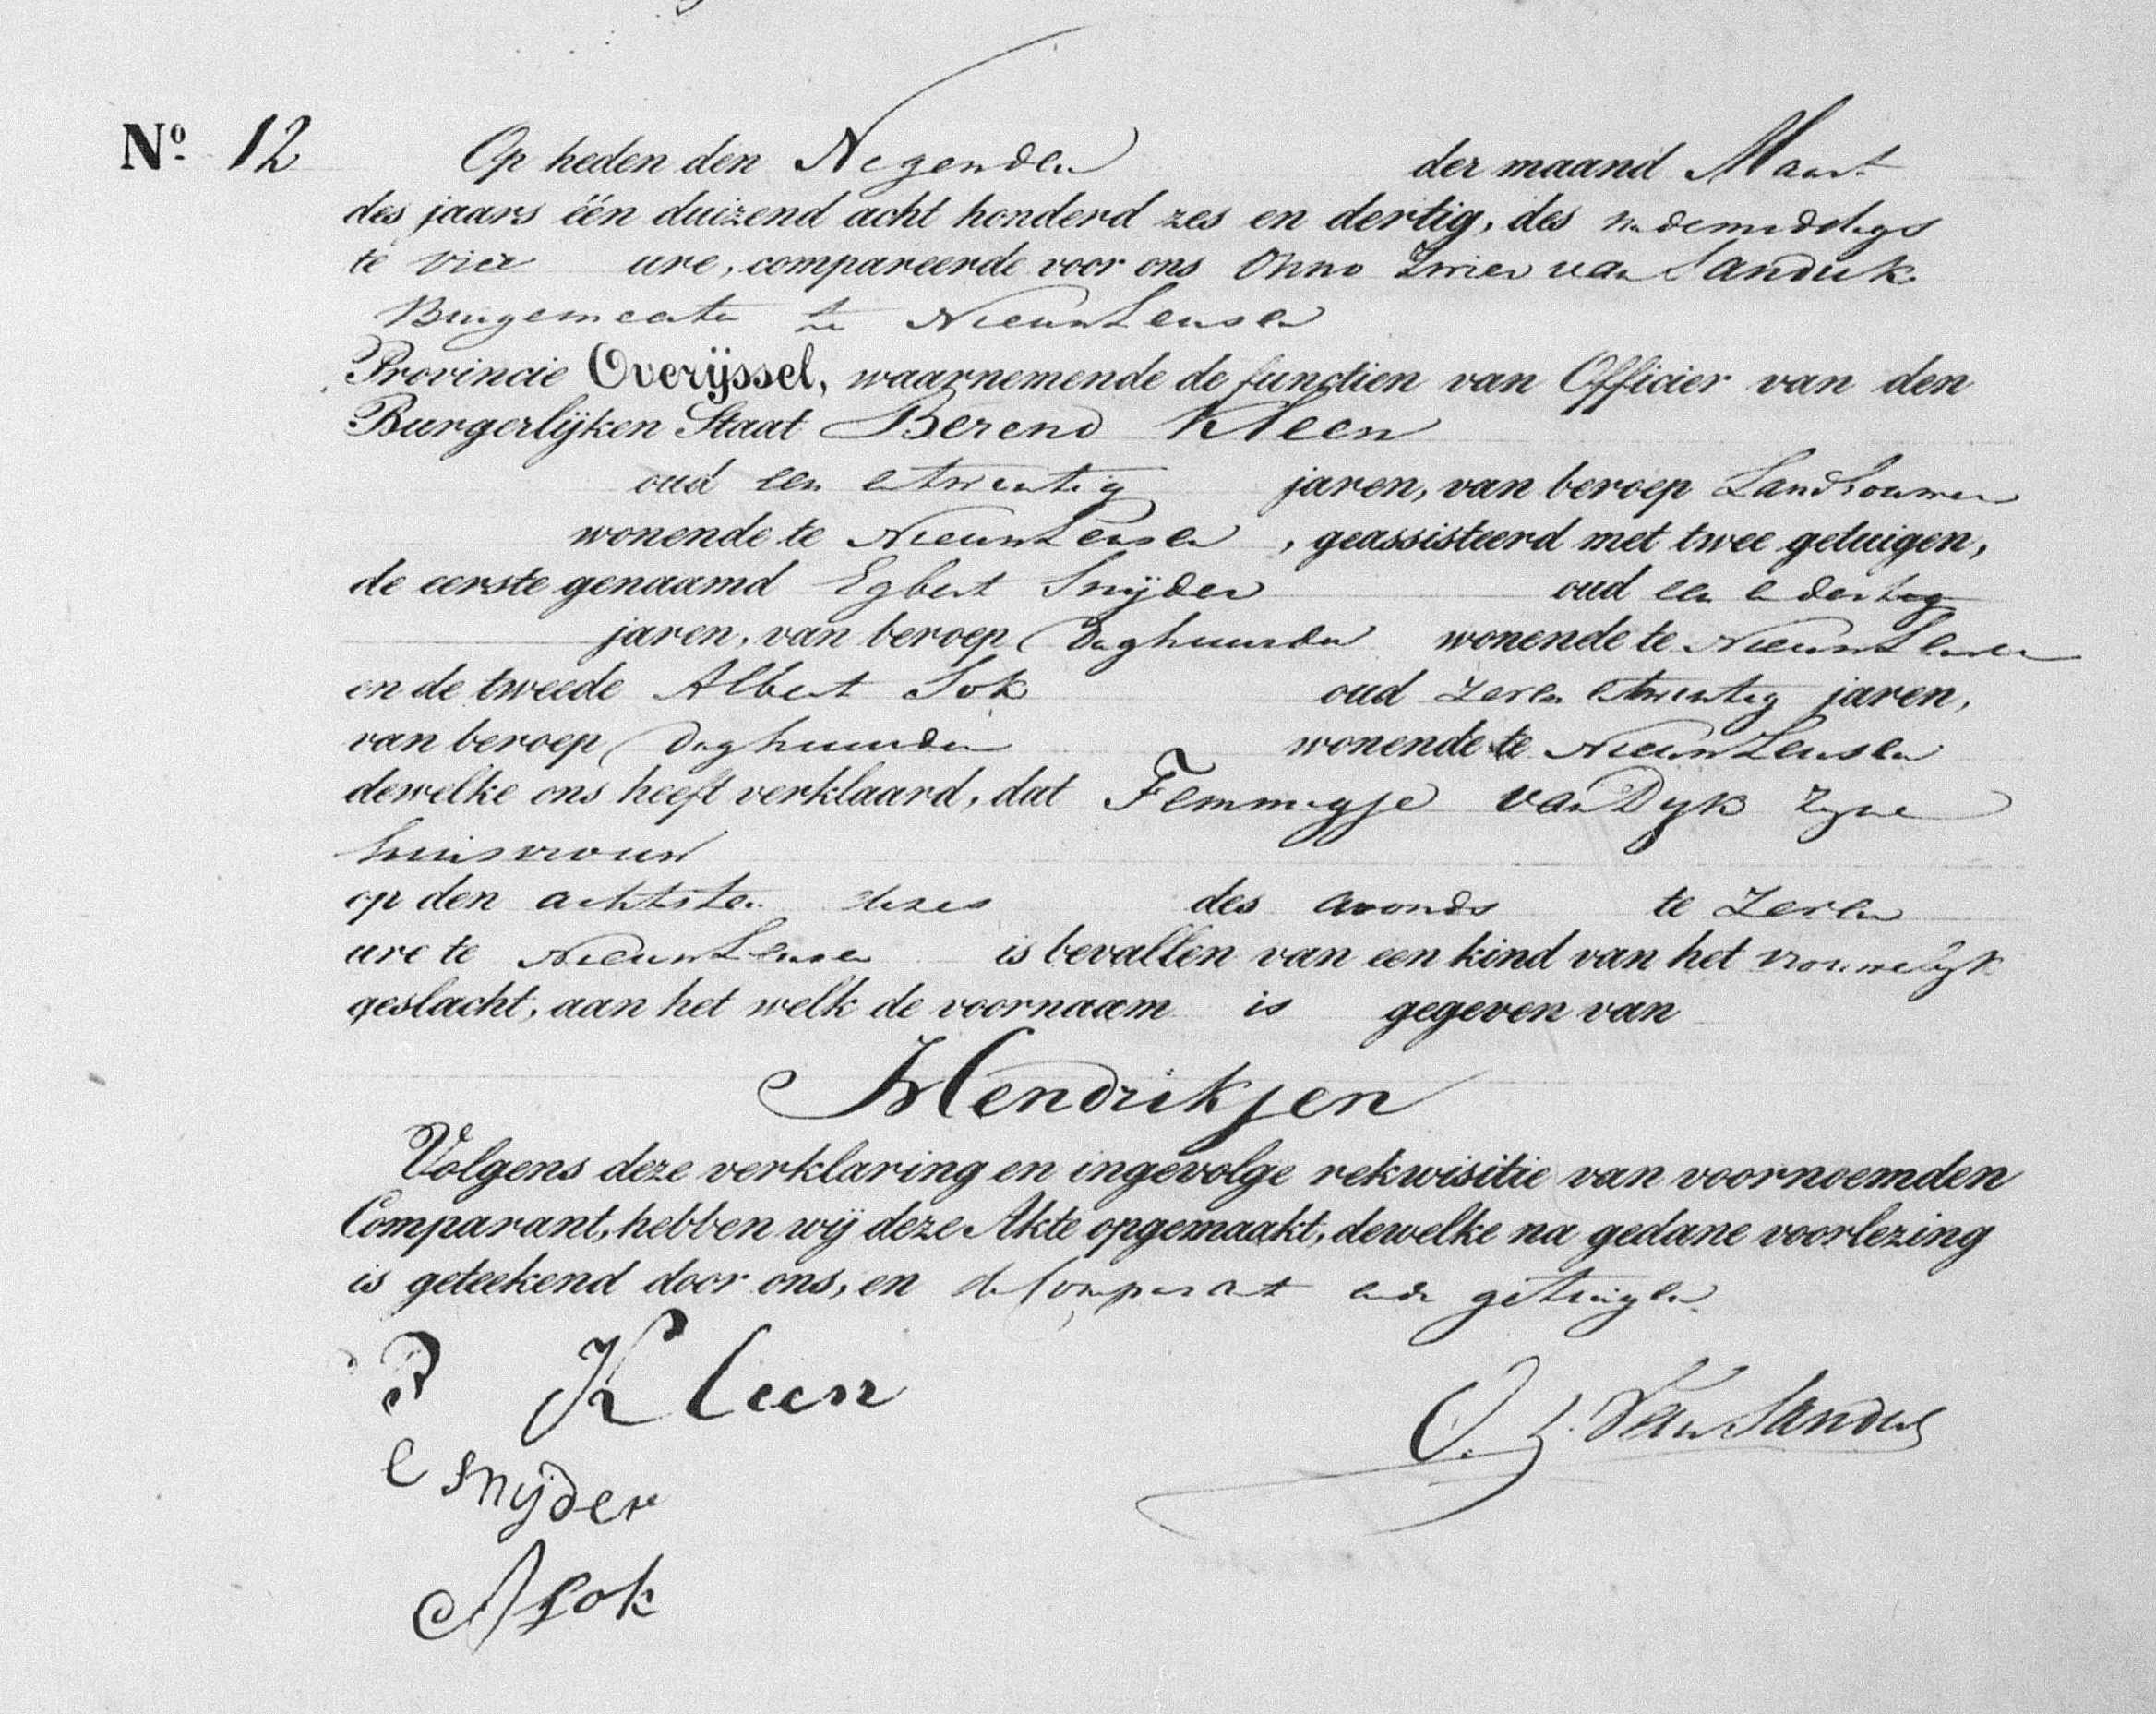 Nº 12 Op heden den Negenden der maand Maart
des jaars één duizend acht honderd zes en dertig, des nademiddags
te vier ure, compareerde voor ons Onno Zwier van Sandick
Burgemeester te Nieuwleusen
Provincie Overijssel, waarnemende de functien van Officier van den
Burgerlijken Staat Berend Kleen
oud een entwintig jaren, van beroep Landbouwer
wonende te Nieuwleusen, geassisteerd met twee getuigen,
de eerste genaamd Egbert Snijder oud een en dertig
jaren, van beroep Daghuurder wonende te Nieuwleusen
en de tweede Albert Sok oud zeven entwintig jaren,
van beroep Daghuurder wonende te Nieuwleusen
dewelke ons heeft verklaard, dat Femmigje van Dyk zyne
huisvrouw
op den achtsten dezes des avonds te Zeven
ure te Nieuwleusen is bevallen van een kind van het vrouwelyk
geslacht, aan het welk de voornaam is gegeven van
Hendrikjen
Volgens deze verklaring en ingevolge rekwisitie van voornoemden
Comparant, hebben wij deze Akte opgemaakt, dewelke na gedane voorlezing
is geteekend door ons, en de Comparant en de getuigen
B Kleen
O. Z. Van Sandick
E Snijder
A Sok